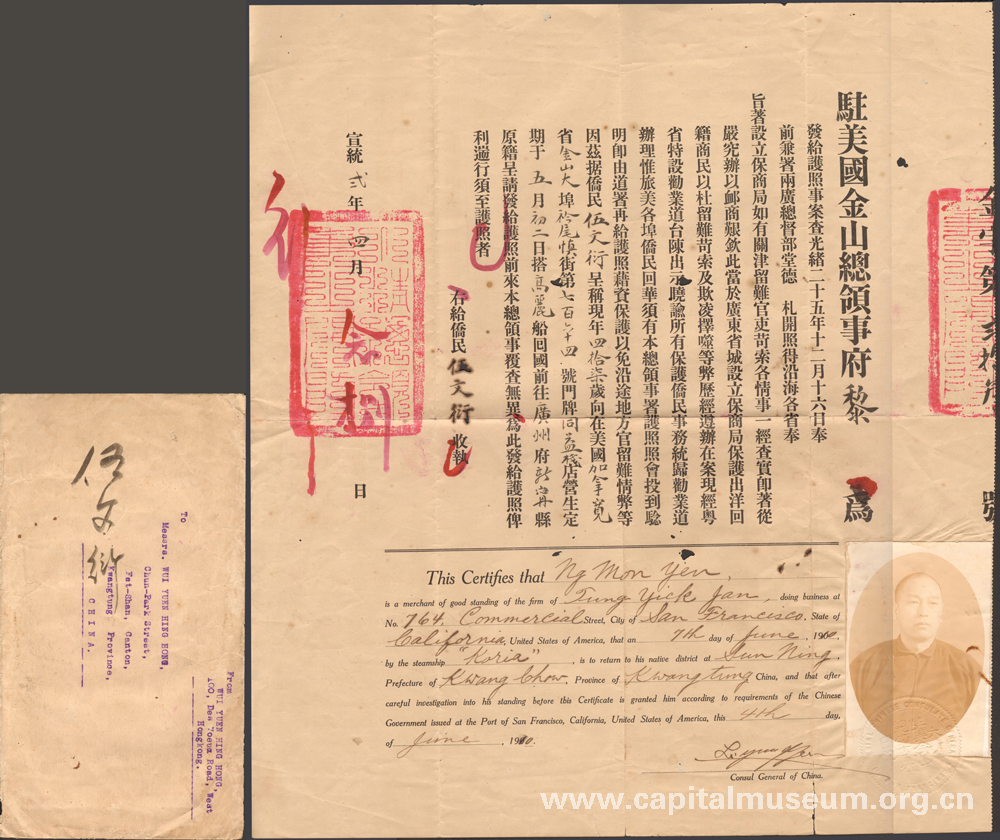 駐美國金山總領事府黎 為
發給護照事案查光緒二十五年十二月十六日奉
前兼署兩廣總督部堂德 札開照得沿海各省奉
旨著設立保商局如有關津留難官吏苛索各情事一經查實即著從
嚴究辦以邮商艱欽此當於廣東省城設立保商局保護出洋回
籍商民以杜留難苛索及欺凌擇噬等弊歷經遵辦在案現經粵
省特設勸業道台陳出示曉諭所有保護僑民事務統歸勸業道
辦理惟旅美各埠僑民回華須有本總領事署護照照會投到騐
明即由道署再給護照藉資保護以免沿途地方官留難情弊等
因茲据僑民伍文衍呈稱現年四拾柒歲向在美國加拿寬
省金山大埠衿尾慎街第七百六十四號門牌同益棧店營生定
期于五月初二日搭高麗船回國前往廣州府新寧縣
原籍呈請發給護照前來本總領事覆查無異為此發給護照俾
利遄行須至護照者
右給僑民伍文衍收執
宣統弍年四月 日
號
This Certifies that Ng Mon Yen,
is a merchant of good standing of the firm of Tung Yick Jan, doing business at
No. 764 Commercial Street, City of San Francisco, State of
California, United States of America, that on 7th day of June, 1910.
by the steamship "Koria", is to return to his native district at Sun Ning,
Prefecture of Kwang Chow, Province of Kwangtung China, and that after
careful investigation into his standing before this Certificate is granted him according to requirements of the Chinese
Government issued at the Port of San Francisco, California, United States of America, this 4th day,
of June, 1910.
Consul General of China.
伍文衍
From
WUI YUEN HING HONG,
100, Des Voeux Road, West
Hongkong.
To
Messrs. WUI YUEN HING HONG,
Chun-Park Street,
Fat-Shan, Canton,
Kwangtung Province,
CHINA.
www.capitalmuseum.org.cn